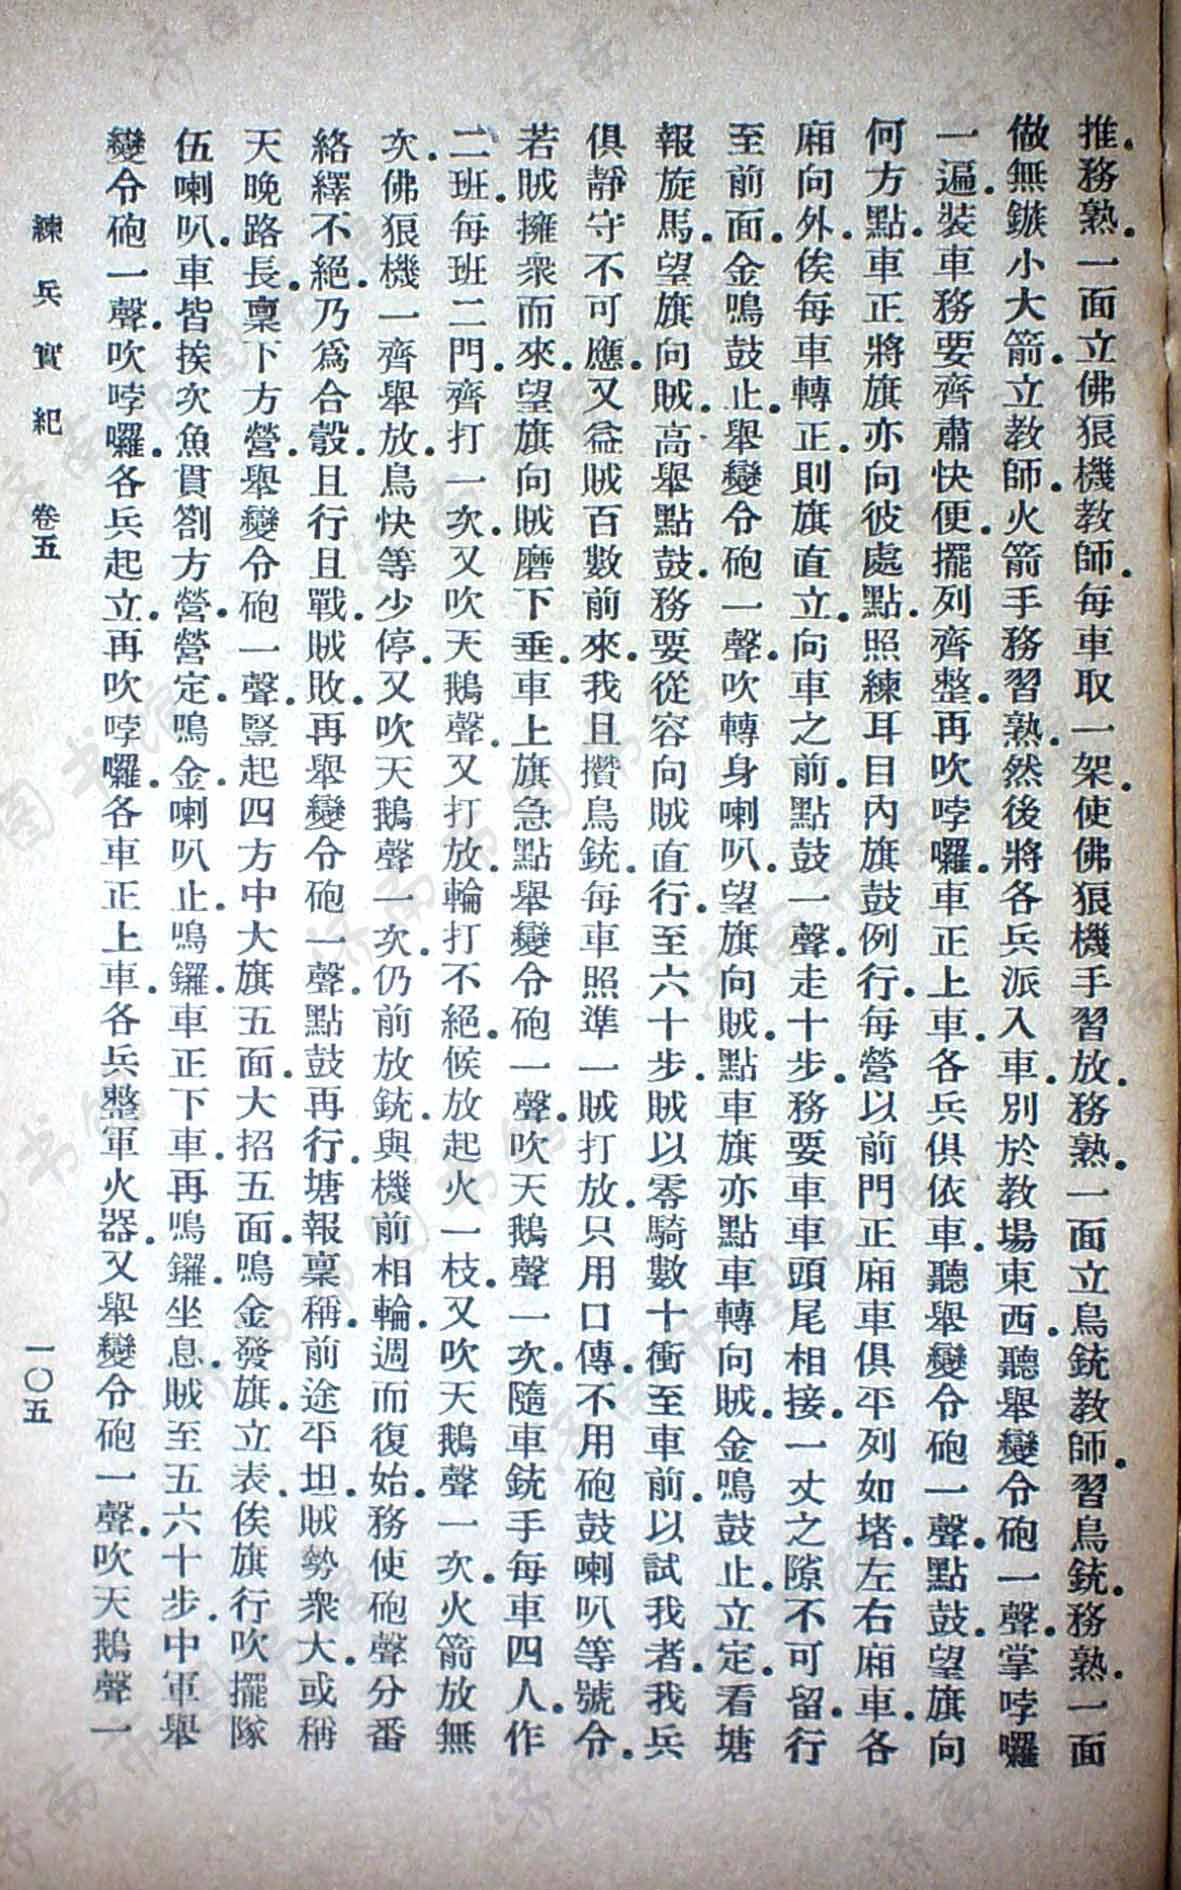 推。務熟。一面立佛狠機教師。每車取一架。使佛狠機手習放。務熟。一面立鳥銃教師。習鳥銃。務熟。一面
做無鏃小大箭。立教師。火箭手務習熟。然後將各兵派入車。別於教場東西。聽舉變令砲一聲。掌哱囉
一遍。裝車務要齊肅快便。擺列齊整。再吹哱囉。車正上車。各兵俱依車。聽舉變令砲一聲。點鼓。望旗向
何方點。車正將旗亦向彼處點。照練耳目內旗鼓例行。每營以前門正廂車俱平列如堵。左右廂車。各
廂向外。俟每車轉正。則旗直立。向車之前。點鼓一聲。走十步。務要車車頭尾相接。一丈之隙不可留。行
至前面。金鳴鼓止。舉變令砲一聲。吹轉身喇叭。望旗向賊。點車旗亦點車轉向賊。金鳴鼓止。立定。看塘
報旋馬。望旗向賊。高舉點鼓。務要從容向賊直行。至六十步。賊以零騎數十衝至車前。以試我者。我兵
俱靜守不可應。又益賊百數前來。我且攢鳥銃。每車照準一賊打放。只用口傳。不用砲鼓喇叭等號令。
若賊擁衆而來。望旗向賊磨下垂。車上旗急點。舉變令砲一聲。吹天鵝聲一次。隨車銃手每車四人。作
二班。每班二門。齊打一次。又吹天鵝聲。又打放。輪打不絕。候放起火一枝。又吹天鵝聲一次。火箭放無
次。佛狠機一齊舉放。鳥快等少停。又吹天鵝聲一次。仍前放銃。與機前相輪。週而復始。務使砲聲分番
絡繹不絕。乃爲合彀。且行且戰。賊敗。再舉變令砲一聲。點鼓再行。塘報稟稱。前途平坦。賊勢衆大。或稱
天晚路長。稟下方營。舉變令砲一聲。豎起四方中大旗五面。大招五面。鳴金發旗。立表。俟旗行吹擺隊
伍喇叭。車皆挨次魚貫劄方營。營定。鳴金。喇叭止。鳴鑼。車正下車。再鳴鑼。坐息。賊至五六十步。中軍舉
變令砲一聲。吹哱囉。各兵起立。再吹哱囉。各車正上車。各兵整軍火器。又舉變令砲一聲。吹天鵝聲一
練兵實紀 卷五 一〇五